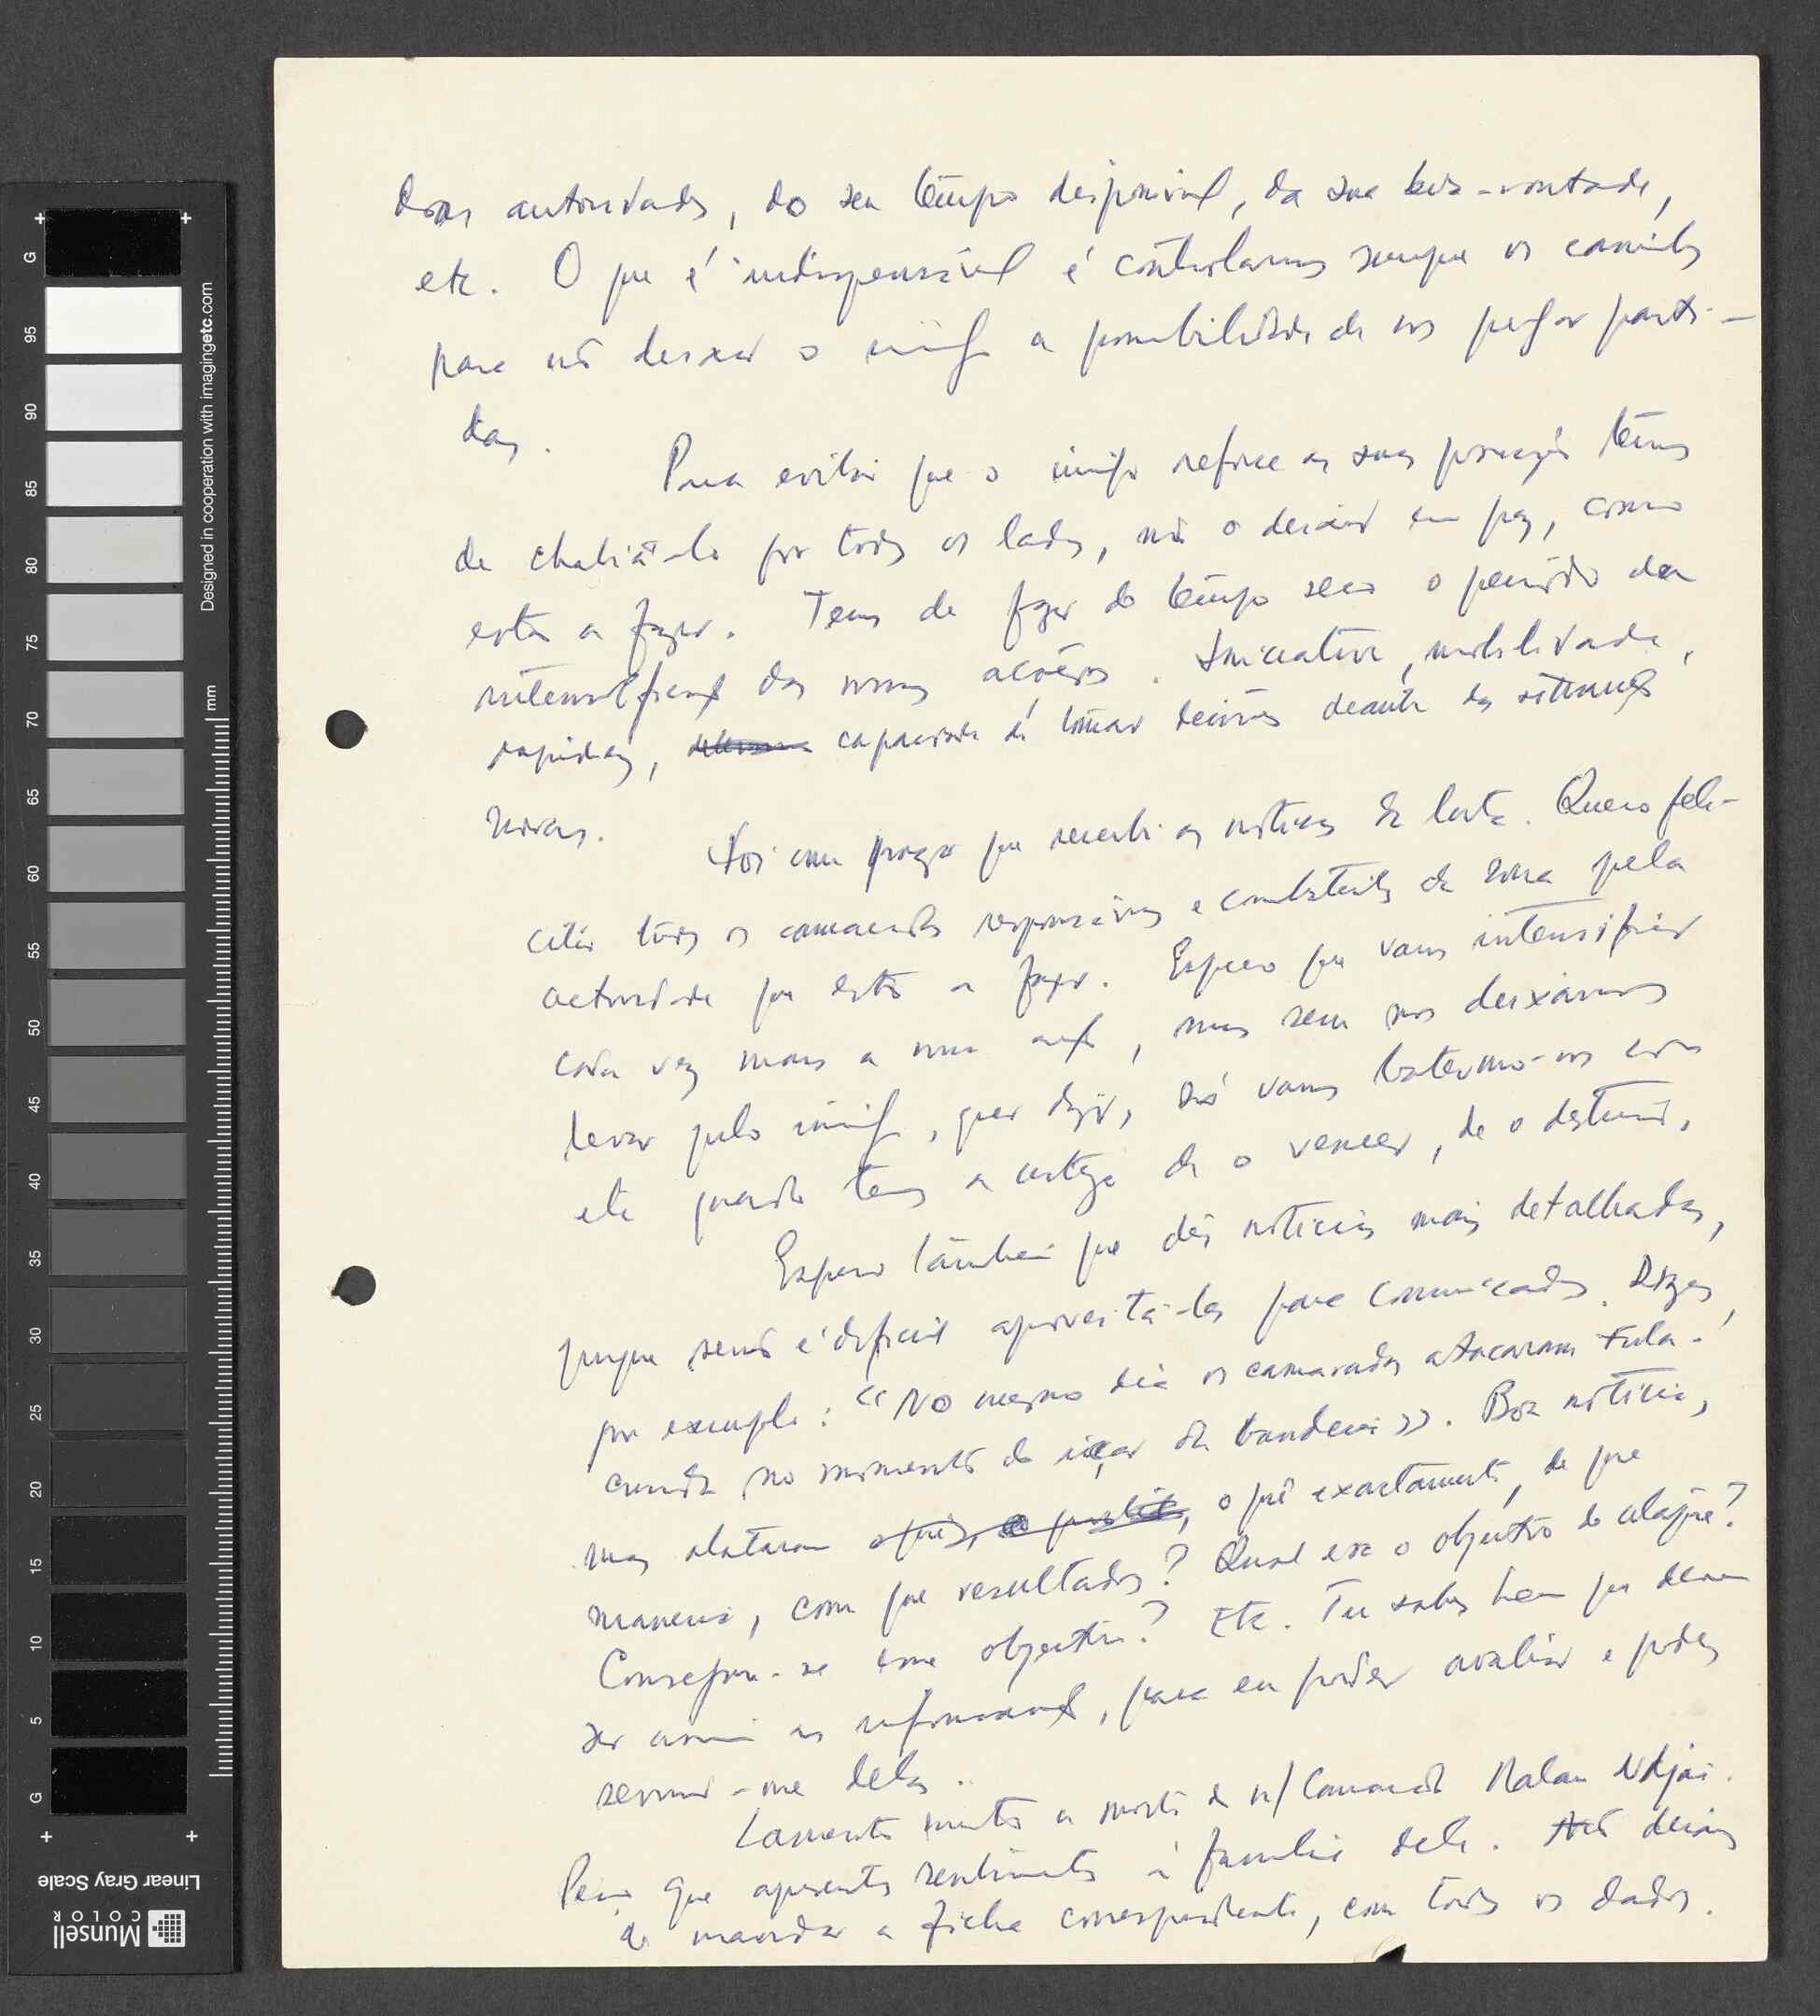 doas autoridades, do seu tempo disponível, da sua boa-vontade,
etc. O que é indispensável é controlarmos sempre os caminhos
para não deixar o inimigo a possibilidade de nos pregar parti-
das.
Para evitar que o inimigo reforce as suas posições temos
de chateá-lo por todos os lados, não o deixar em paz, como
estás a fazer. Temos de fazer do tempo seco o período da
intensificação das nossas acções. Iniciativa, mobilidade,
rapidez, capacidade de tomar decisões deante das situações
novas.
Foi com prazer que recebi as notícias da luta. Quero feli-
citar todos os camaradas responsáveis e combatentes da zona pela
actividade que estão a fazer. Espero que vamos intensificar
cada vez mais a nossa acção, mas sem nos deixarmos
levar pelo inimigo, quer dizer, só vamos batermo-nos com
ele quando temos a certeza de o vencer, de o destruir.
Espero também que dês notícias mais detalhadas,
porque senão é difícil aproveitá-las para comunicados. Dizes,
por exemplo: «No mesmo dia os camaradas atacaram Fula-
cunda no momento do içar da bandeira». Boa notícia,
mas atacaram o quê, o quê exactamente, de que
maneira, com que resultados? Qual era o objectivo do ataque?
Conseguiu-se esse objectivo? Etc. Tu sabes bem que devem
ser assim as informações, para eu poder avaliar e poder
servir-me delas.
Lamento muito a morte do n/ Camarada Malan Ndjai.
Peço que apresentes sentimentos à família dele. Não deixes
de mandar a ficha correspondente, com todos os dados.
Designed in cooperation with imagingetc.com
mm
G 95 90 85 80 75 70 65 60 55 50 45 40 35 30 25 20 15 10 5 G
Linear Gray Scale
Munsell
COLOR